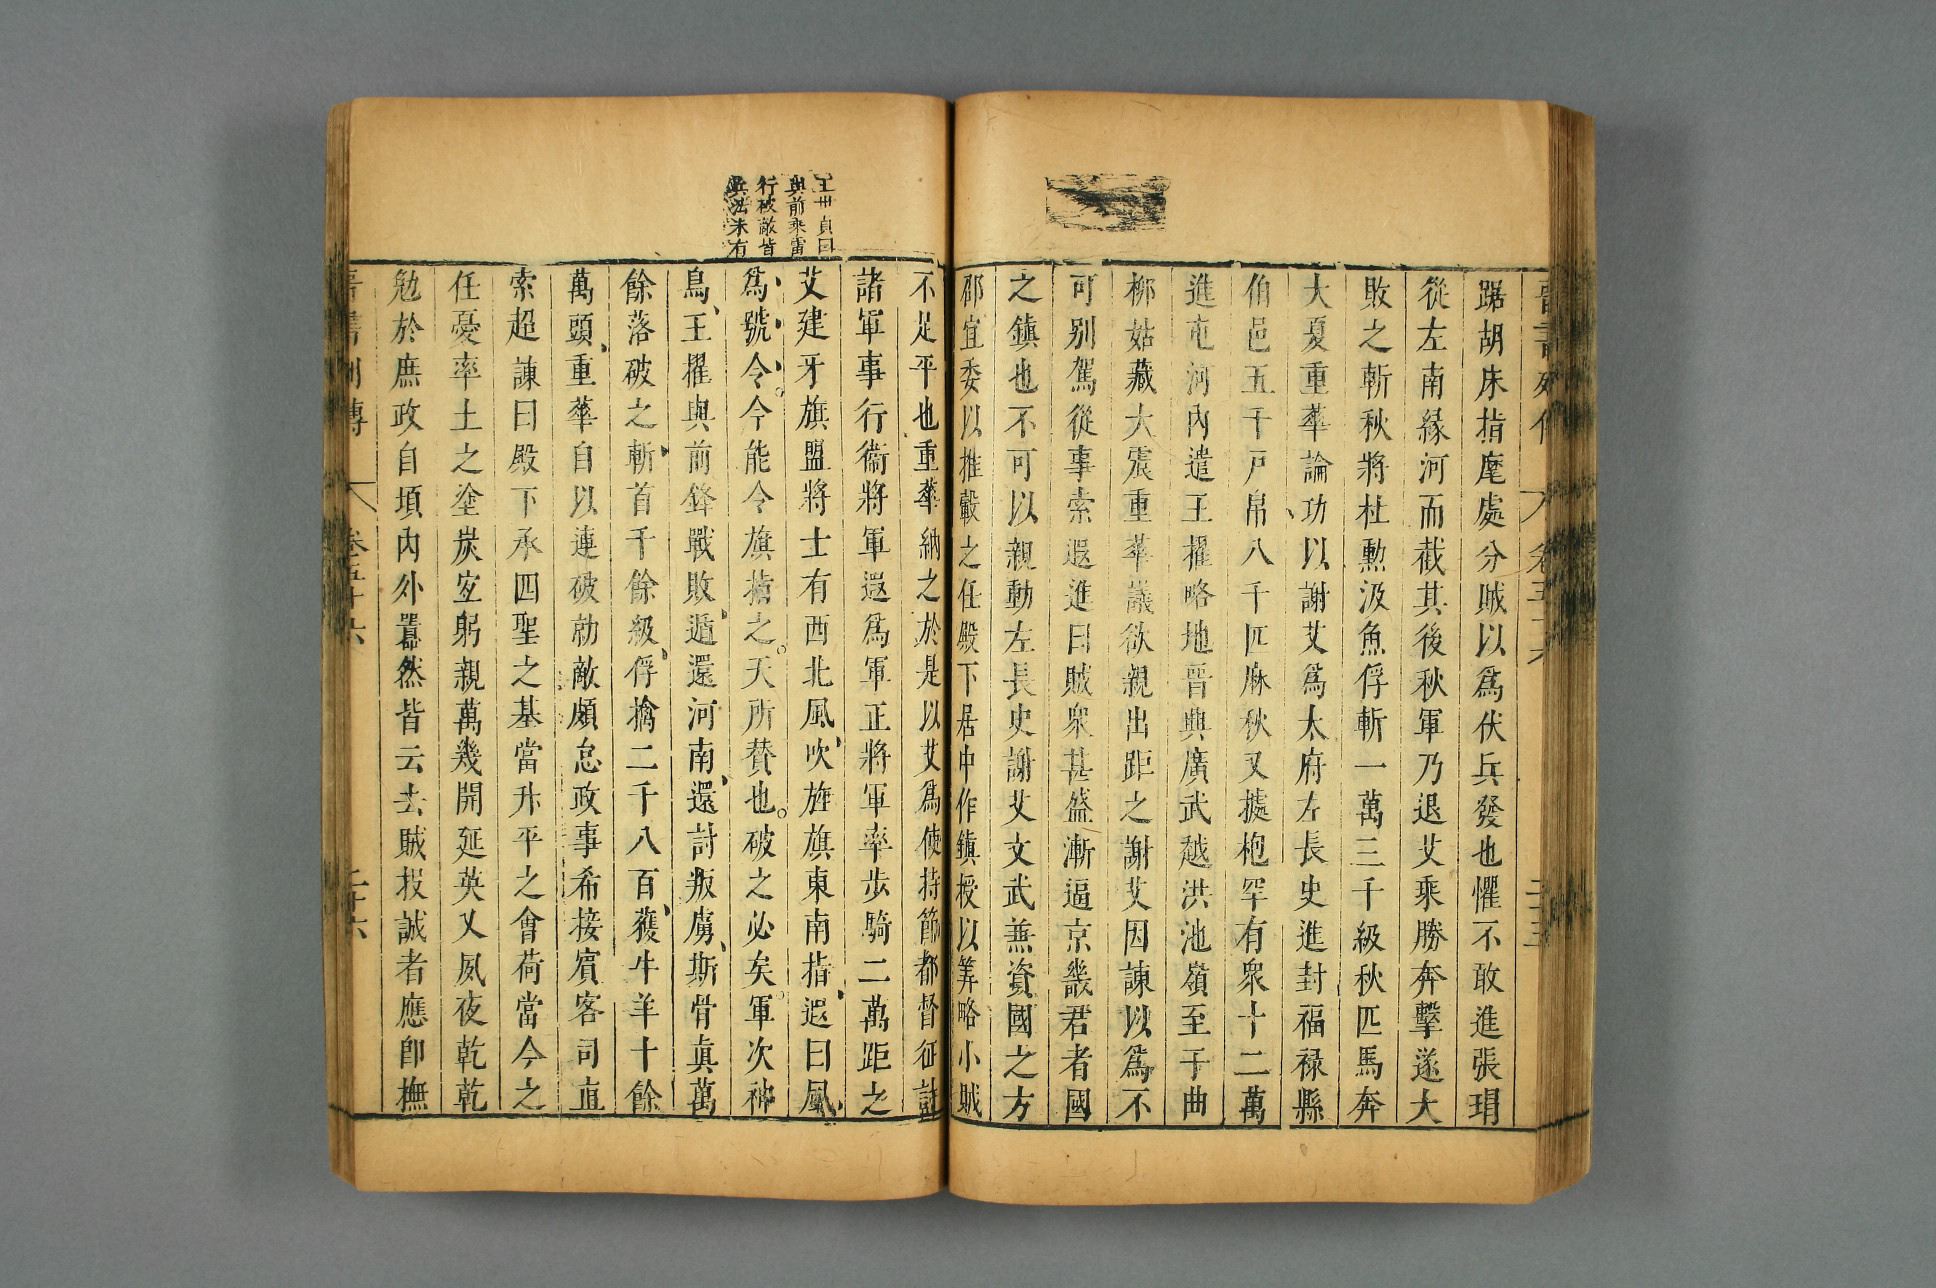 晉書列傳 卷五十六 二十五
踞胡床指麾處分賊以爲伏兵發也懼不敢進張瑁
從左南緣河而截其後秋軍乃退艾乘勝奔擊遂大
敗之斬秋將杜勲汲魚俘斬一萬三千級秋匹馬奔
大夏重華論功以謝艾爲太府左長史進封福祿縣
伯邑五千戸帛八千匹麻秋又據枹罕有衆十二萬
進屯河內遣王擢略地晉興廣武越洪池嶺至于曲
柳姑臧大震重華議欲親出距之謝艾因諫以爲不
可別駕從事索遐進曰賊衆甚盛漸逼京畿君者國
之鎭也不可以親動左長史謝艾文武兼資國之方
邵宜委以推轂之任殿下居中作鎭授以筭略小賊
不足平也重華納之於是以艾爲使持節都督征討
諸軍事行衞將軍遐爲軍正將軍率步騎二萬距之
艾建牙旗盟將士有西北風吹旌旗東南指遐曰風
爲號令今能令旗指之天所賛也破之必矣軍次神
鳥王擢與前鋒戰敗遁還河南還討叛虜斯骨眞萬
餘落破之斬首千餘級俘擒二千八百獲牛羊十餘
萬頭重華自以連破勍敵頗怠政事希接賓客司直
索超諫曰殿下承四聖之基當升平之會荷當今之
任憂率土之塗炭宜躬親萬幾開延英乂夙夜乾乾
勉於庶政自頃內外囂然皆云去賊投誠者應卽撫
晉書列傳 卷五十六 二十六
王世貞曰
與前乘雷
行破敵皆
兵法未有